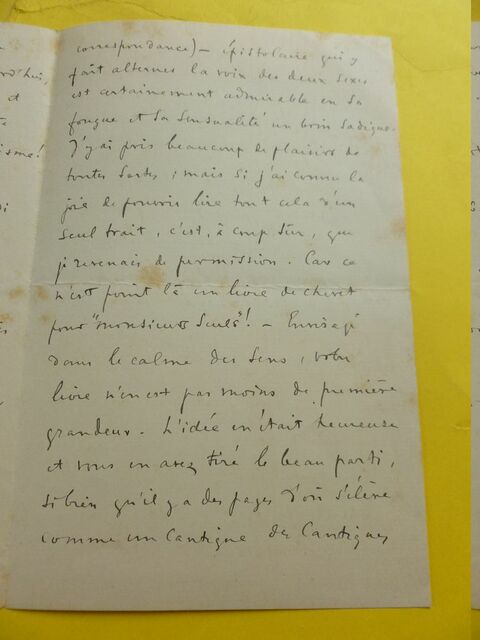 correspondance) - épistolaire qui y
fait alterner la voix des deux sexes
est certainement admirable en sa
fougue et sa sensualité un brin sadique.
J'y ai pris beaucoup de plaisirs de
toutes sortes ; mais si j'ai connu la
joie de pouvoir lire tout cela d'un
seul trait, c'est, à coup sûr, que
je revenais de permission. Car ce
n'est point là un livre de chevet
pour "monsieurs seuls"! - Envisagé
dans le calme des sens, votre
livre n'en est pas moins de première
grandeur. L'idée en était heureuse
et vous en avez tiré le beau parti,
si bien qu'il y a des pages d'où s'élève
comme un Cantique des Cantiques
rd'hui,
et
isme!